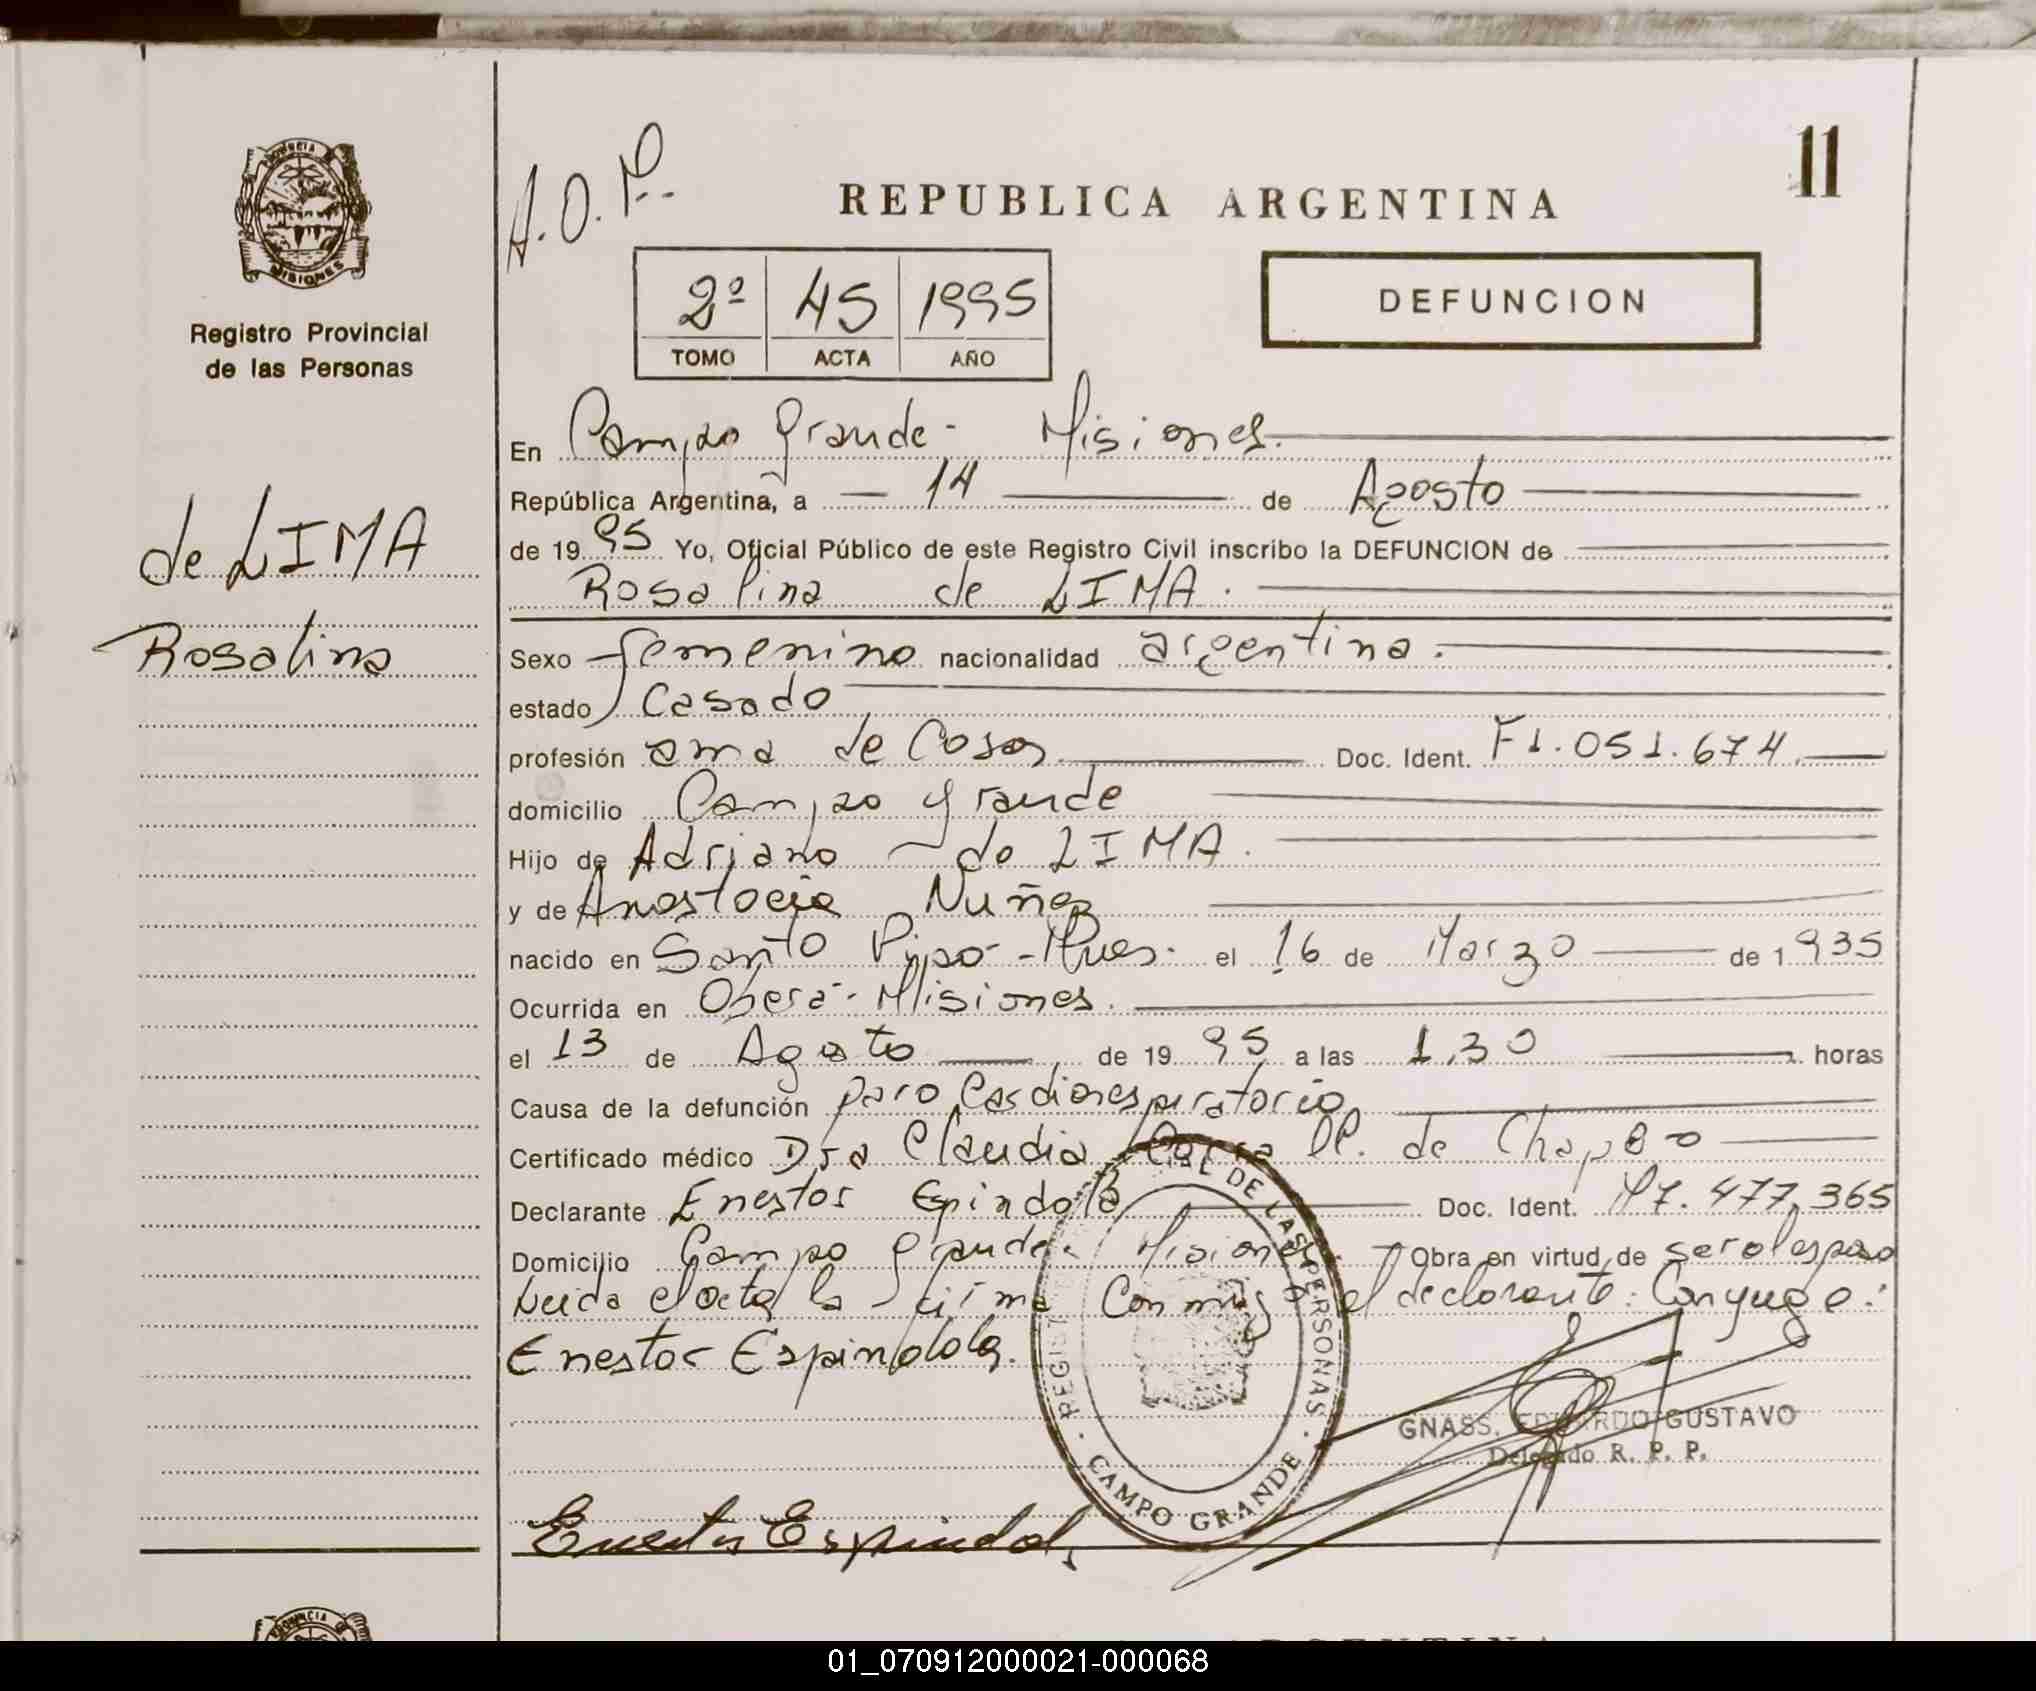 11
A.O.P.
REPUBLICA ARGENTINA
PROVINCIA DE
MISIONES
Registro Provincial
de las Personas
2º 45 1995
TOMO ACTA AÑO
DEFUNCION
de LIMA
Rosalina
En Campo Grande - Misiones.
República Argentina, a 14 de Agosto
de 1995 Yo, Oficial Público de este Registro Civil inscribo la DEFUNCION de
Rosalina de LIMA.
Sexo femenino nacionalidad argentina.
estado Casado
profesión ama de Casa Doc. Ident. F1.051.674
domicilio Campo Grande
Hijo de Adriano de LIMA.
y de Anastacia Nuñez
nacido en Santo Pipó - Mnes. el 16 de Marzo de 1935
Ocurrida en Oberá - Misiones.
el 13 de Agosto de 1995 a las 1,30 horas
Causa de la defunción paro Cardiorespiratorio
Certificado médico Dra Claudia de Chapo
Declarante Enestor Espindola Doc. Ident. M7.477.365
Domicilio Campo Grande. Misiones. Obra en virtud de ser el esposo
Leida el acta la firma Conmigo el declarante: Conyuge:
Enestor Espindola.
REGISTRO DE LAS PERSONAS
CAMPO GRANDE
GNASS, EDUARDO GUSTAVO
Delegado R. P. P.
Enestor Espindola
01_070912000021-000068